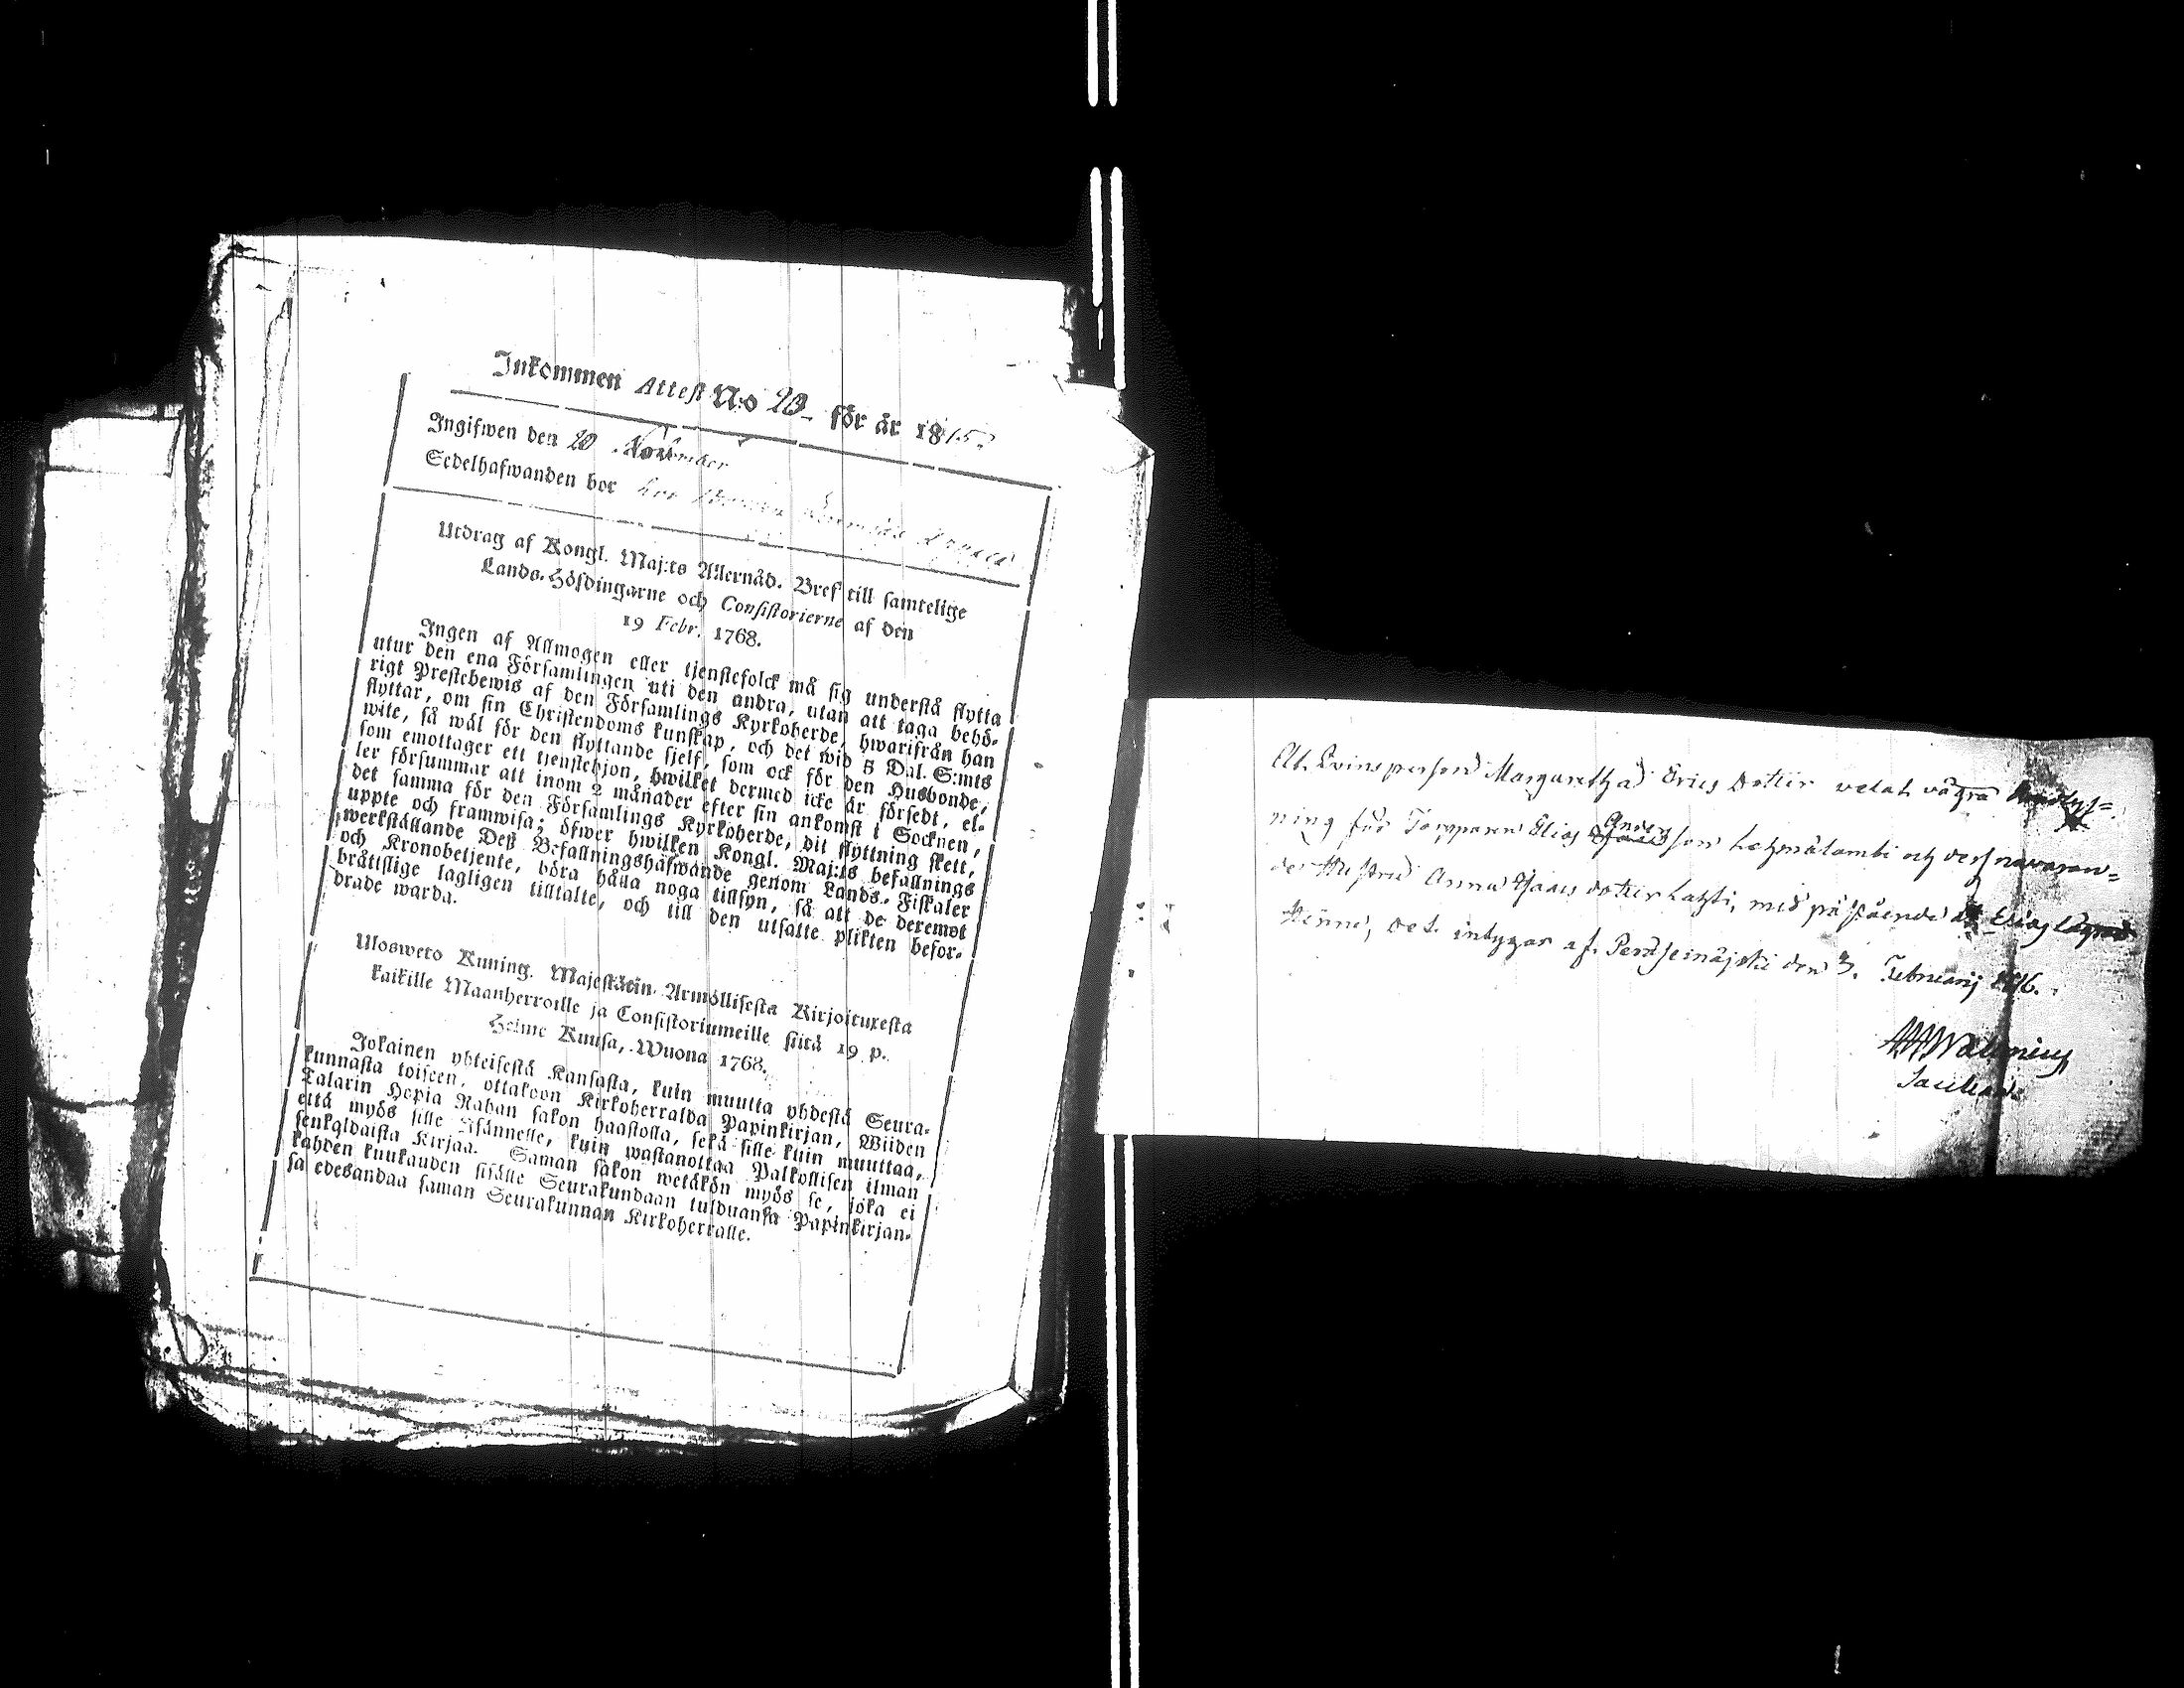 Inkommen Attest N:o 20 för år 1815.
Ingifwen den 20 November
Sedelhafwanden bor hos
Utdrag af Kongl. Maj:ts Allernåd. Bref till samtelige
Lands-Höfdingarne och Consistorierne af den
19 Febr. 1768.
Ingen af Allmogen eller tjenstefolck må sig understå flytta
utur den ena Församlingen uti den andra, utan att taga behö-
rigt Prestebewis af den Församlings Kyrkoherde, hwarifrån han
flyttar, om sin Christendoms kunskap, och det wid 5 Dal. S:mts
wite, så wäl för den flyttande sjelf, som ock för den Husbonde,
som emottager ett tjenstehjon, hwilket dermed icke är försedt, el-
ler försummar att inom 2 månader efter sin ankomst i Socknen,
det samma för den Församlings Kyrkoherde, dit flyttning skett,
uppte och framwisa; öfwer hwilken Kongl. Maj:ts befallnings
werkställande Deß Befallningshafwande genom Lands-Fiskaler
och Kronobetjente, böra hålla noga tillsyn, så att de deremot
bråttslige lagligen tilltalte, och till den utsatte plikten befor-
drade warda.
Ulosweto Kuning. Majestätin Armollisesta Kirjoituxesta
kaikille Maanherroille ja Consistoriumeille siitä 19 p.
Helme Kuusa, Wuona 1768.
Jokainen yhteisestä Kansasta, kuin muutta yhdestä Seura-
kunnasta toiseen, ottakoon Kirkoherralda Papinkirjan, Wiiden
Talarin Hopia Rahan sakon haastolla, sekä sille kuin muuttaa,
että myös sille Isännelle, kuin wastanottaa Palkollisen ilman
senkaldaista Kirjaa. Saman sakon wetäkön myös se, joka ei
kahden kuukauden sisälle Seurakundaan tulduansa Papinkirjan-
sa edesandaa saman Seurakunnan Kirkoherralle.
At Qvinsperson Margaretha Erics dotter velat vägra
ning för Torpparen Elias Anders son Lehmälambi och dess navaran-
der Hustru Anna Isaacs dotter Lahti, med påstående at Elias
Henne, det intygas af Peräseinäjoki den 3. Februarij 1816.